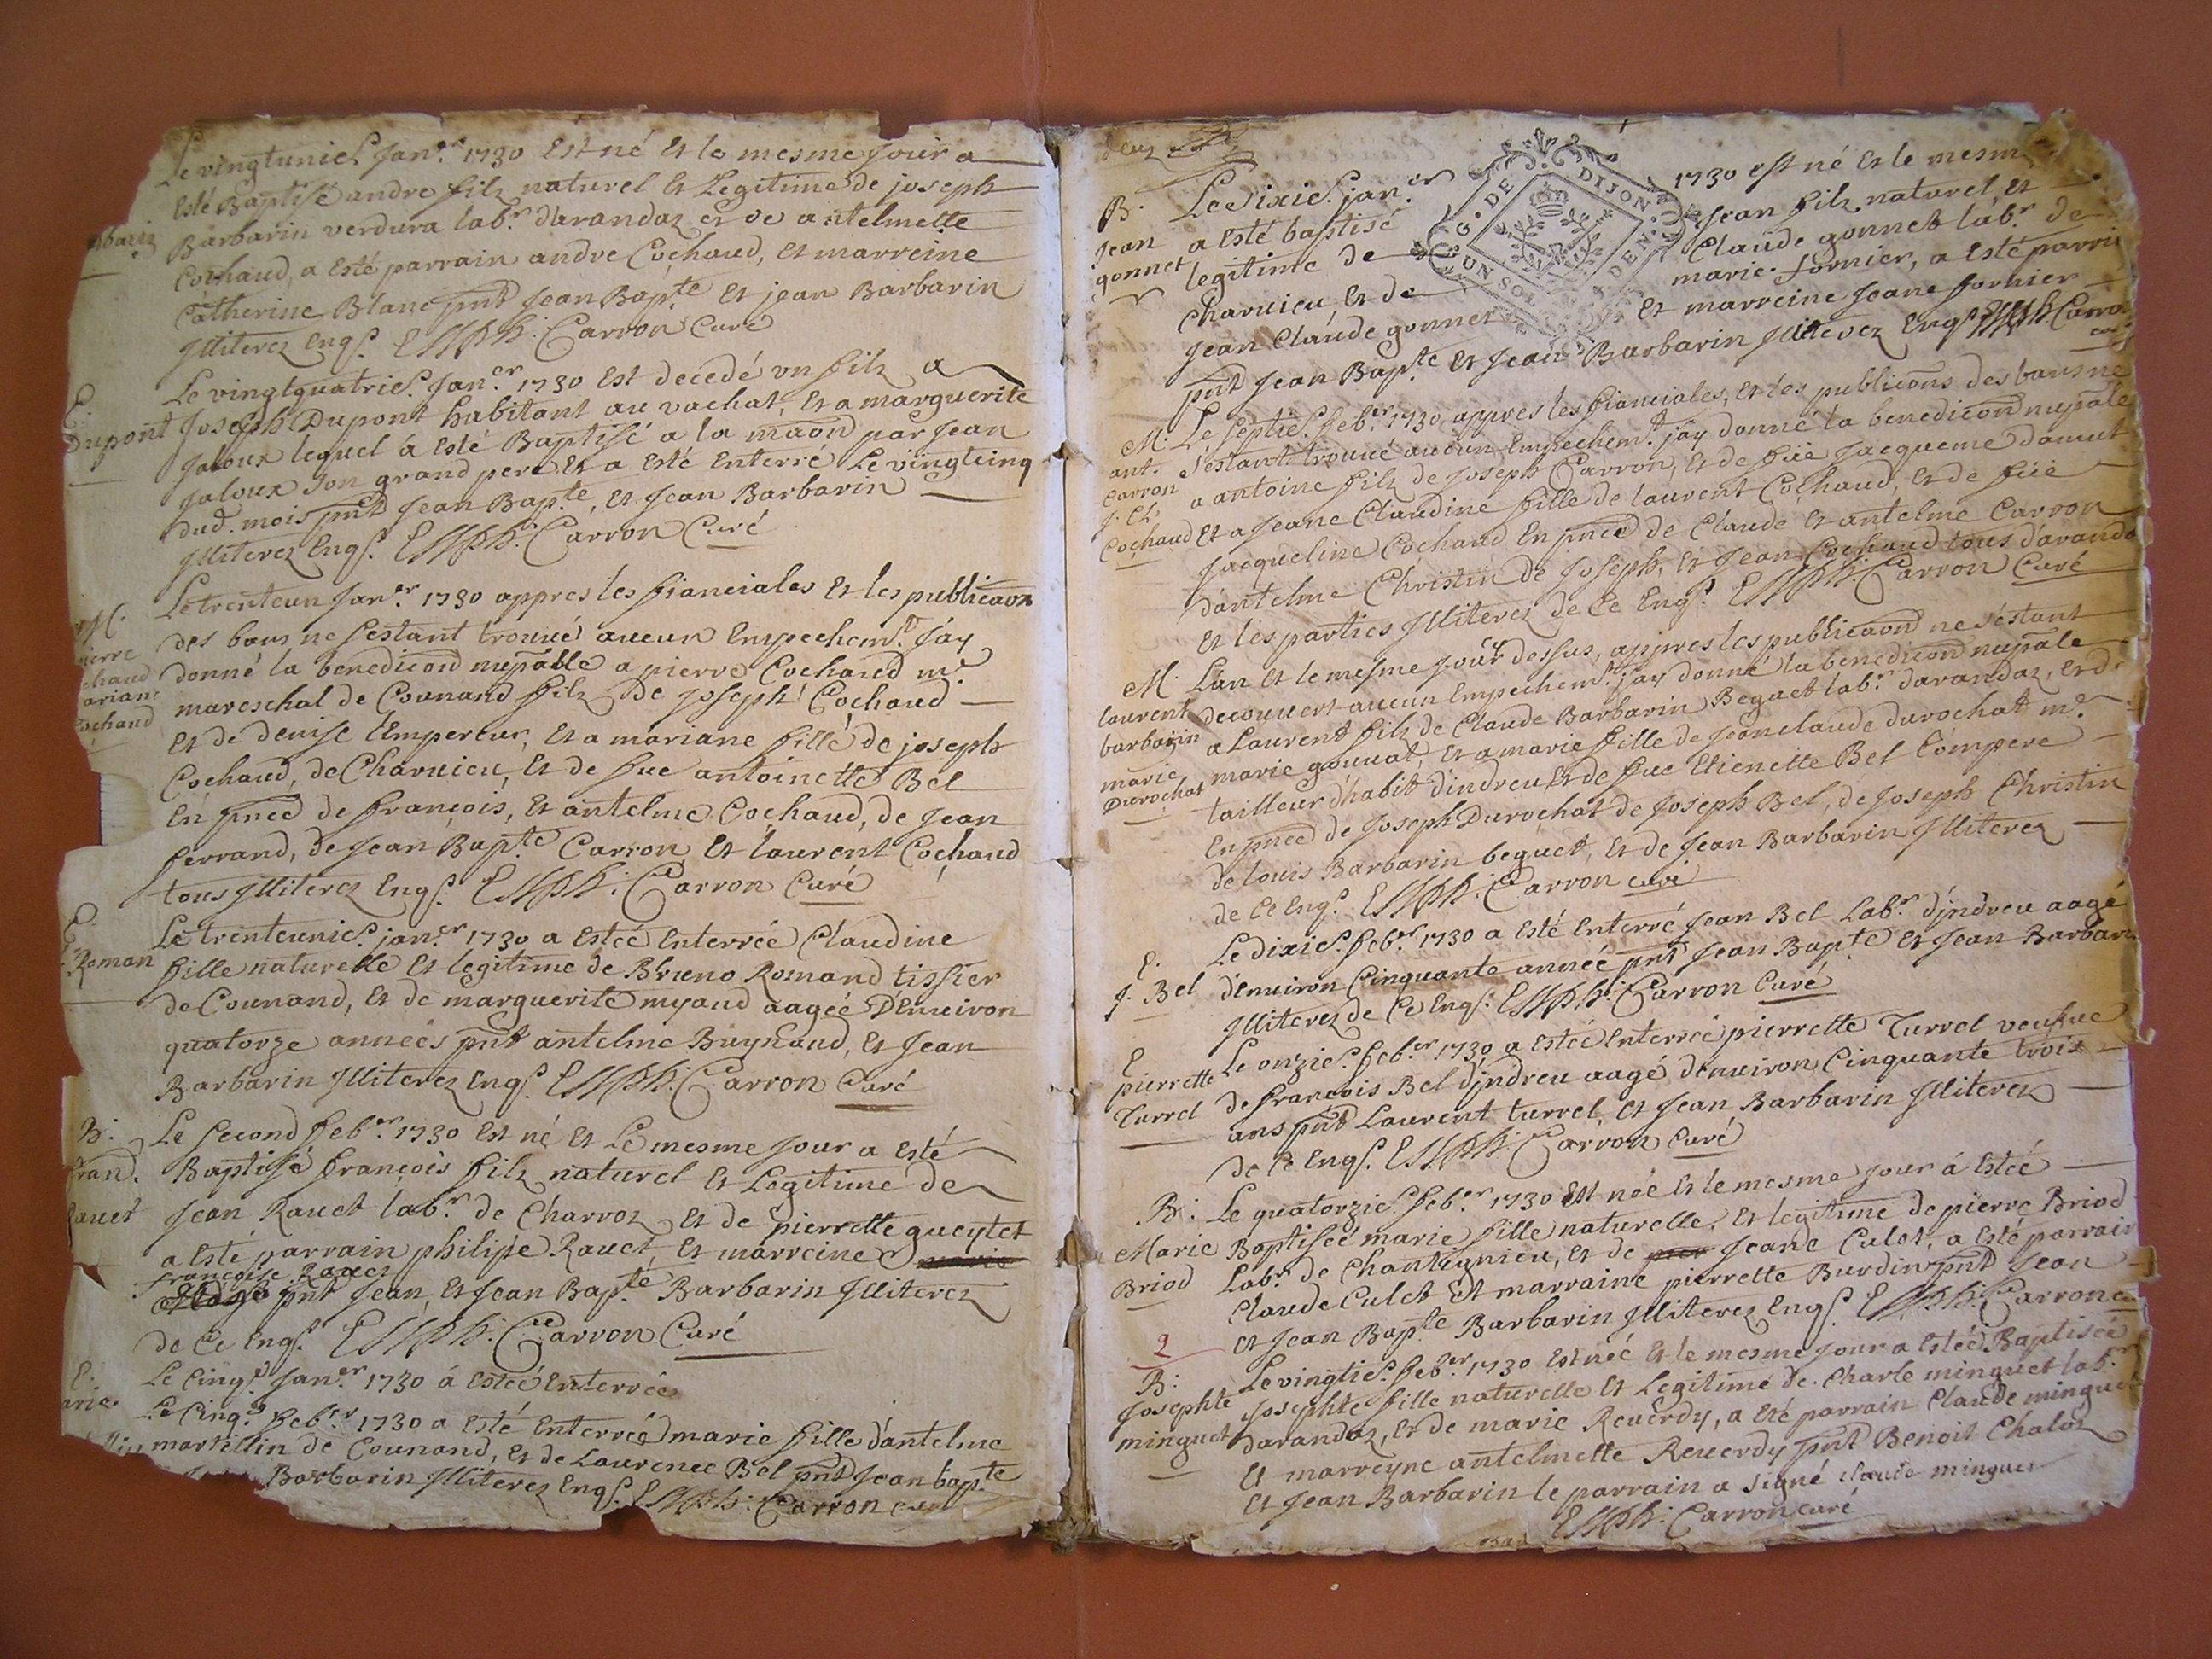 Le vingtunie. Jan.er 1730 Est né Et le mesme Jour a
Esté Baptisé andre filz naturel Et Legitime de joseph
Barbarin verdura lab.r darandaz et de antelmette
Cochaud, a Esté parrain andre Cochaud, et marreine
Catherine Blanc pnt Jean Bap.te Et jean Barbarin
Illiterez Enq.s Carron Curé
E.
Dupont
Le vingtquatrie. Jan.er 1730 Est decedé un filz a
Joseph Dupont habitant au vachat, Et a marguerite
Jaloux lequel a Esté Baptisé a la maon par Jean
Jaloux son grand pere Et a Esté Enterré Le vingtcinq
dud. mois pnt Jean Bap.te, Et Jean Barbarin
Illiterez Enq.s Carron Curé
M.
ierre
chaud
ariane
cochaud
Le trenteun Jan.er 1730 appres les fianciales Et les publicaon
des bans ne sestant trouué aucun Empechem.t J'ay
donné la benedicon nupālle a pierre Cochaud m.e
mareschal de Counand filz de joseph Cochaud
Et de denise Empereur, Et a mariane fille de joseph
Cochaud, de Charuieu, Et de fue antoinette Bel
En pnce de françois, Et antelme Cochaud, de Jean
ferrand, de Jean Bap.te Carron Et laurent Cochaud
tous Illiterez Enq.s Carron Curé
E.
Roman
Le trenteunie. jan.er 1730 a Estée Enterrée Claudine
fille naturelle Et legitime de Bruno Romand tissier
de Counand, Et de marguerite myaud aagée D'Enuiron
quatorze années pnt antelme Buynaud, Et Jean
Barbarin Illiterez Enq.s Carron Curé
B.
fran.
Rauet
Le second feb.er 1730 Est né Et Le mesme Jour a Esté
Baptisé françois filz naturel Et Legitime de
Jean Rauet lab.r de Charroz Et de pierrette gueytet
a Esté parrain philipe Rauet Et marreine
françoise Rauet
pnt Jean Et Jean Bap.te Barbarin Illiterez
de Ce Enq.s Carron Curé
E.
arie
Le Cinq.e Jan.er 1730 á Estée Enterrée
Le Cinq.e feb.er 1730 a Esté Enterrée marie fille d'antelme
martellin de Counand, Et de Laurence Bel pnt Jean bap.te
Barbarin Illiterez Enq.s Carron Curé
deux
G. DE DIJON. UN SOL DEN.
B.
Jean
gonnet
Le Sixie. jan.er 1730 est né Et le mesm
a Esté baptisé Jean filz naturel et
legitime de Claude gonnet lab.r de
Charuieu Et de marie fornier, a Esté parrin
Jean Claude gonnet Et marreine Jeane fornier
pnt Jean Bap.te Et Jean Barbarin Illiterez Enq.s Carron
M.
ant.
Carron
J. Cl.
Cochaud
Le Septie. feb.er 1730 appres les fianciales, Et les publicons des bans ne
s'estant trouué aucun Empechem.t j'ay donné la benedicon nupāle
a antoine filz de Joseph Carron, Et de füe Jacqueme damet
Et a Jeane Claudine fille de laurent Cochaud, Et de füe
Jacqueline Cochaud En pnce de Claude Et antelme Carron
d'antelme Christin de Joseph, Et Jean Cochaud tous d'arando
Et les parties Illiterez de Ce Enq.s Carron Curé
M.
laurent
barbarin
marie
Durochat
L'an Et le mesme Jour dessus, appres les publicaon ne s'estant
decouuert aucun Empechem.t j'ay donné la benedicon nupāle
a Laurent filz de Claude Barbarin Beguet lab.r d'arandaz, Et de
marie gouuat, Et a marie fille de Jean claude durochat m.e
tailleur d'habit d'indreu Et de fue Etienette Bel Compere
En pnce de Joseph Durochat de Joseph Bel, de Joseph Christin
de louis Barbarin beguet, Et de Jean Barbarin Illiterez
de Ce Enq.s Carron curé
E.
J. Bel
Le dixie. feb.er 1730 a Esté Enterré Jean Bel Lab.r d'jndreu aagé
d'enuiron Cinquante année pnt Jean Bap.te Et Jean Barbarin
Illiterez de Ce Enq.s Carron Curé
E
pierrette
Turrel
Le onzie. feb.er 1730 a Estée Enterrée pierrette Turrel veufue
de francois Bel d'jndreu aagé d'enuiron Cinquante trois
ans pnt Laurent turrel, Et Jean Barbarin Illiterez
de Ce Enq.s Carron Curé
B.
Marie
Briod
Le quatorzie. feb.er 1730 Est née Et le mesme jour á Estée
Baptisée marie fille naturelle, Et legitime de pierre Briod
Lab.r de Chantignieu, Et de Jeane Culet, a Esté parrain
Claude Culet Et marraine pierrette Burdin pnt Jean
Et Jean Bap.te Barbarin Illiterez Enq.s Carron
2
B.
Josephte
minguet
Le vingtie. feb.er 1730 Est née Et le mesme jour a Estée Baptisée
Josephte fille naturelle Et Legitime de Charle minguet lab.r
d'arandaz, Et de marie Reuerdy, a Eté parrain Claude minguet
Et marreyne antelmette Reuerdy pnt Benoit Chaloz
Et Jean Barbarin le parrain a signé claude minguet
Carron curé